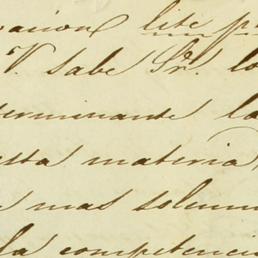 racion lite p
V. sabe Sr. lo
terminante la
esta materia,
mas solemn
la competenci